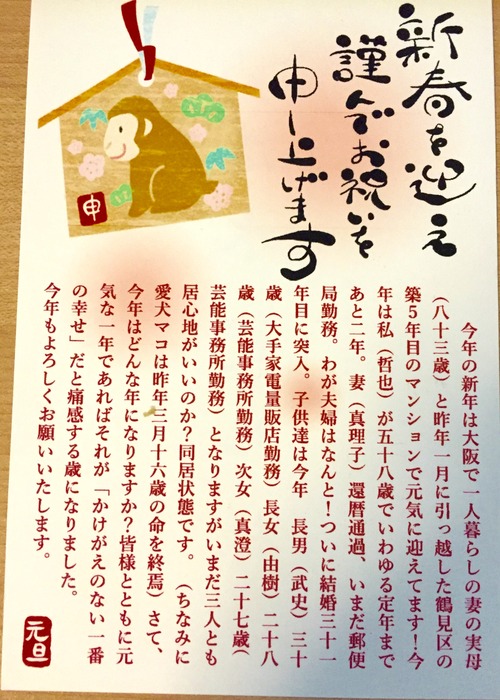 新春を迎え
謹んでお祝いを
申し上げます
申
今年の新年は大阪で一人暮らしの妻の実母
（八十三歳）と昨年一月に引っ越した鶴見区の
築５年目のマンションで元気に迎えてます！今
年は私（哲也）が五十八歳でいわゆる定年まで
あと二年。妻（真理子）還暦通過、いまだ郵便
局勤務。わが夫婦はなんと！ついに結婚三十一
年目に突入。子供達は今年　長男（武史）三十
歳（大手家電量販店勤務）長女（由樹）二十八
歳（芸能事務所勤務）次女（真澄）二十七歳（
芸能事務所勤務）となりますがいまだ三人とも
居心地がいいのか？同居状態です。（ちなみに
愛犬マコは昨年三月十六歳の命を終焉）さて、
今年はどんな年になりますか？皆様とともに元
気な一年であればそれが「かけがえのない一番
の幸せ」だと痛感する歳になりました。
今年もよろしくお願いいたします。
元旦